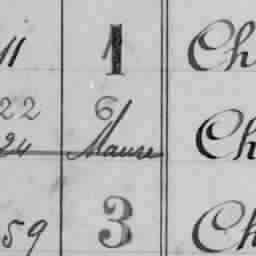 11 1 Ch
22 6
24 Maure Ch
59 3 Ch